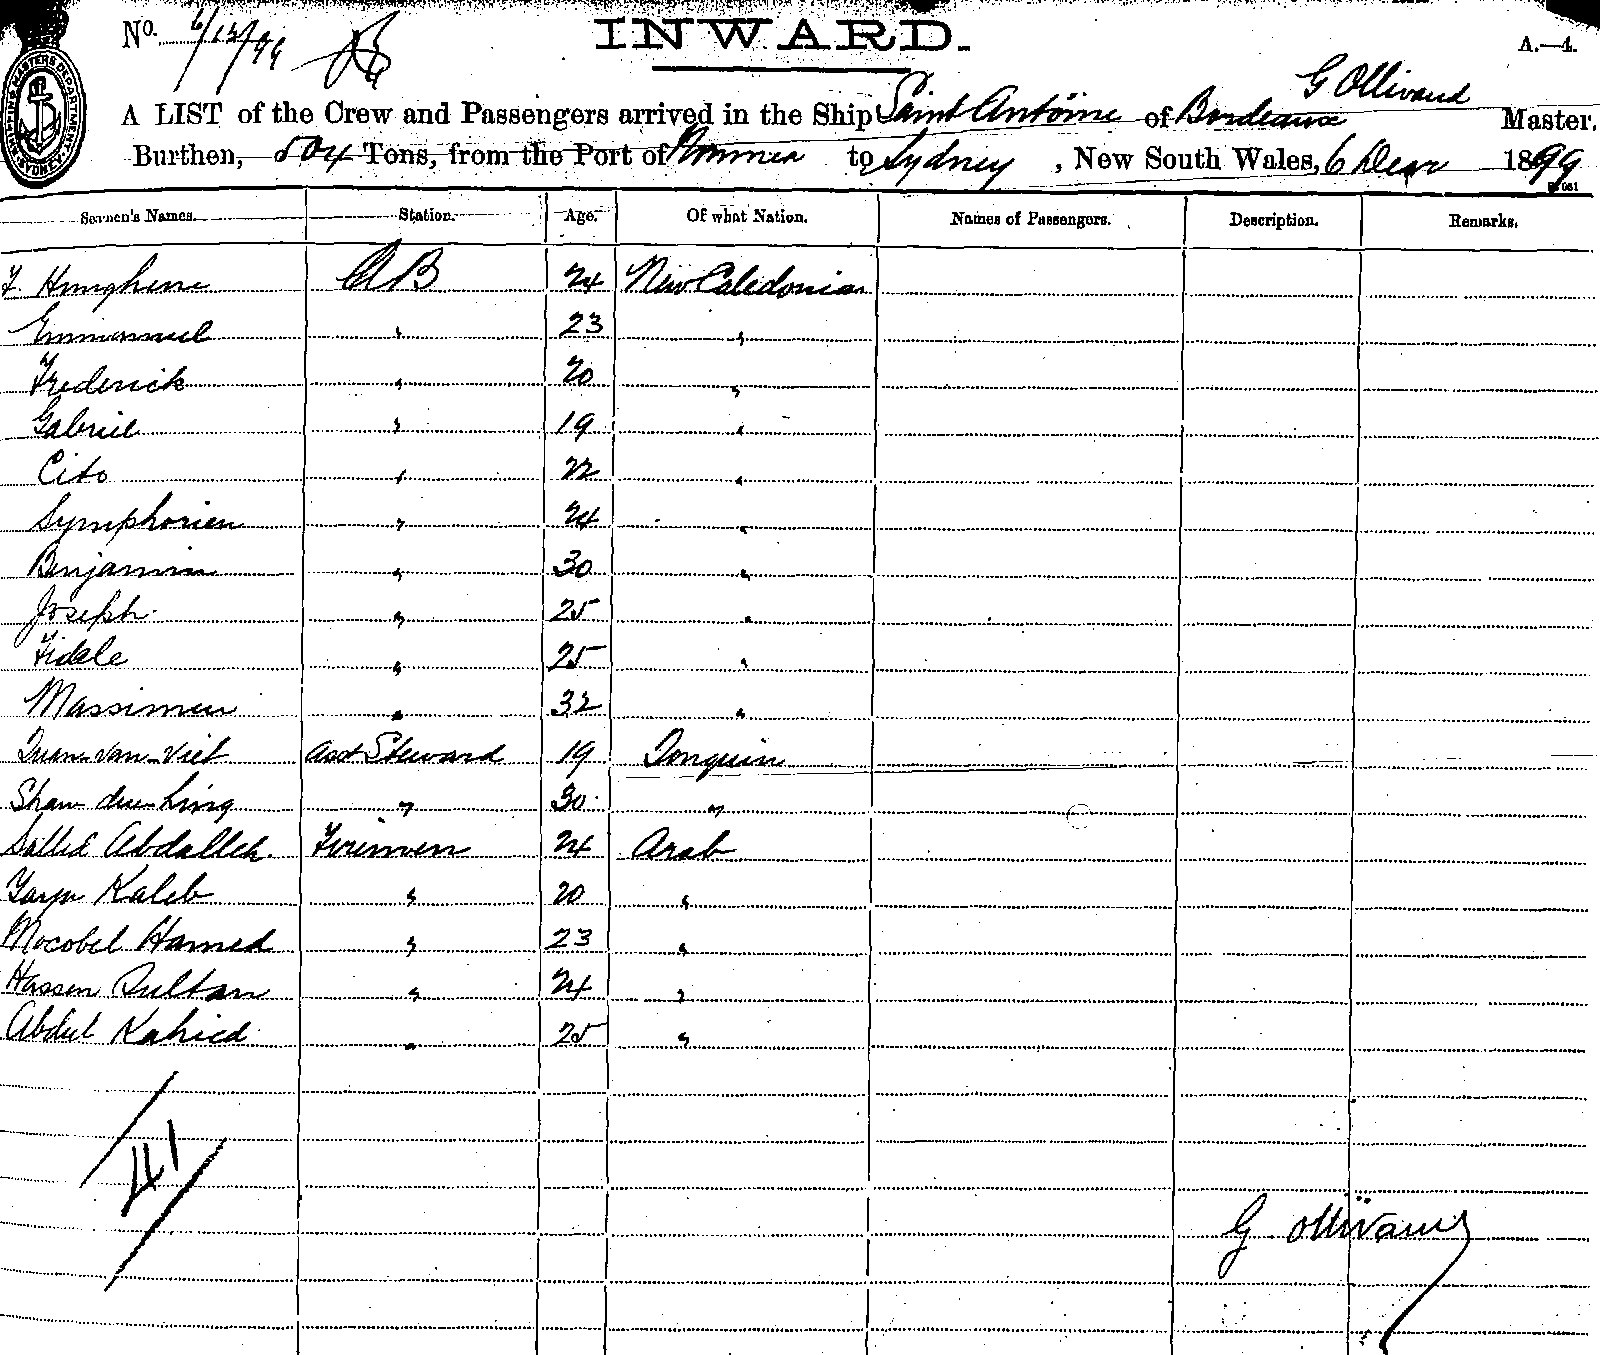 No. 6/12/99
INWARD.
A.—4.
G Ollivaud
A LIST of the Crew and Passengers arrived in the Ship Saint Antoine of Bordeaux Master,
Burthen, 504 Tons, from the Port of Noumea to Sydney, New South Wales, 6 Decr 1899
Seamen's Names. Station. Age. Of what Nation. Names of Passengers. Description. Remarks.
AB 24 New Caledonian
Emmanuel " 23 "
Frederick " 20 "
Gabriel " 19 "
Cito " 22 "
Symphorien " 24 "
Benjamin " 30 "
Joseph " 25 "
Fidele " 25 "
Massimeu " 32 "
van-Viet Asst Steward 19 Tonquin
Shaw Ling " 30 "
Abdallah Firemen 24 Arab
Kaleb " 20 "
Mocobel Hamed " 23 "
Hassen Sultan " 24 "
Abdul Kahied " 25 "
41
G Ollivaud